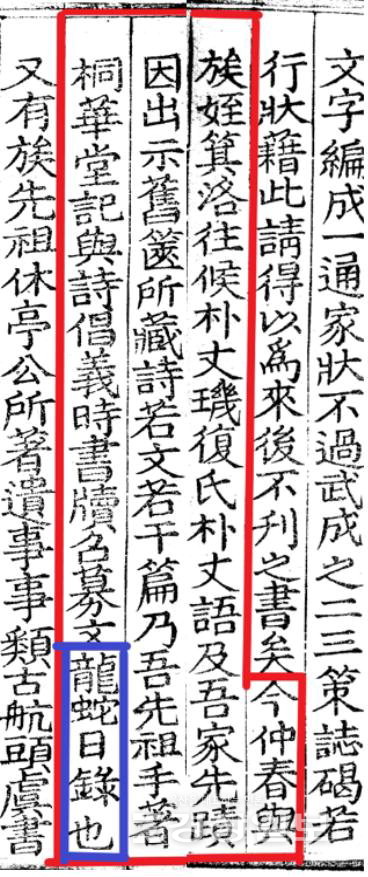 文字編成一通家狀不過武成之二三策誌碣若
行狀藉此請得以爲來後不刊之書矣今仲春與
族姪箕洛往候朴丈璣復氏朴丈語及吾家先蹟
因出示舊篋所藏詩若文若干篇乃吾先祖手著
桐華堂記與詩倡義時書牘召募文龍蛇日錄也
又有族先祖休亭公所著遺事事類古航頭虞書